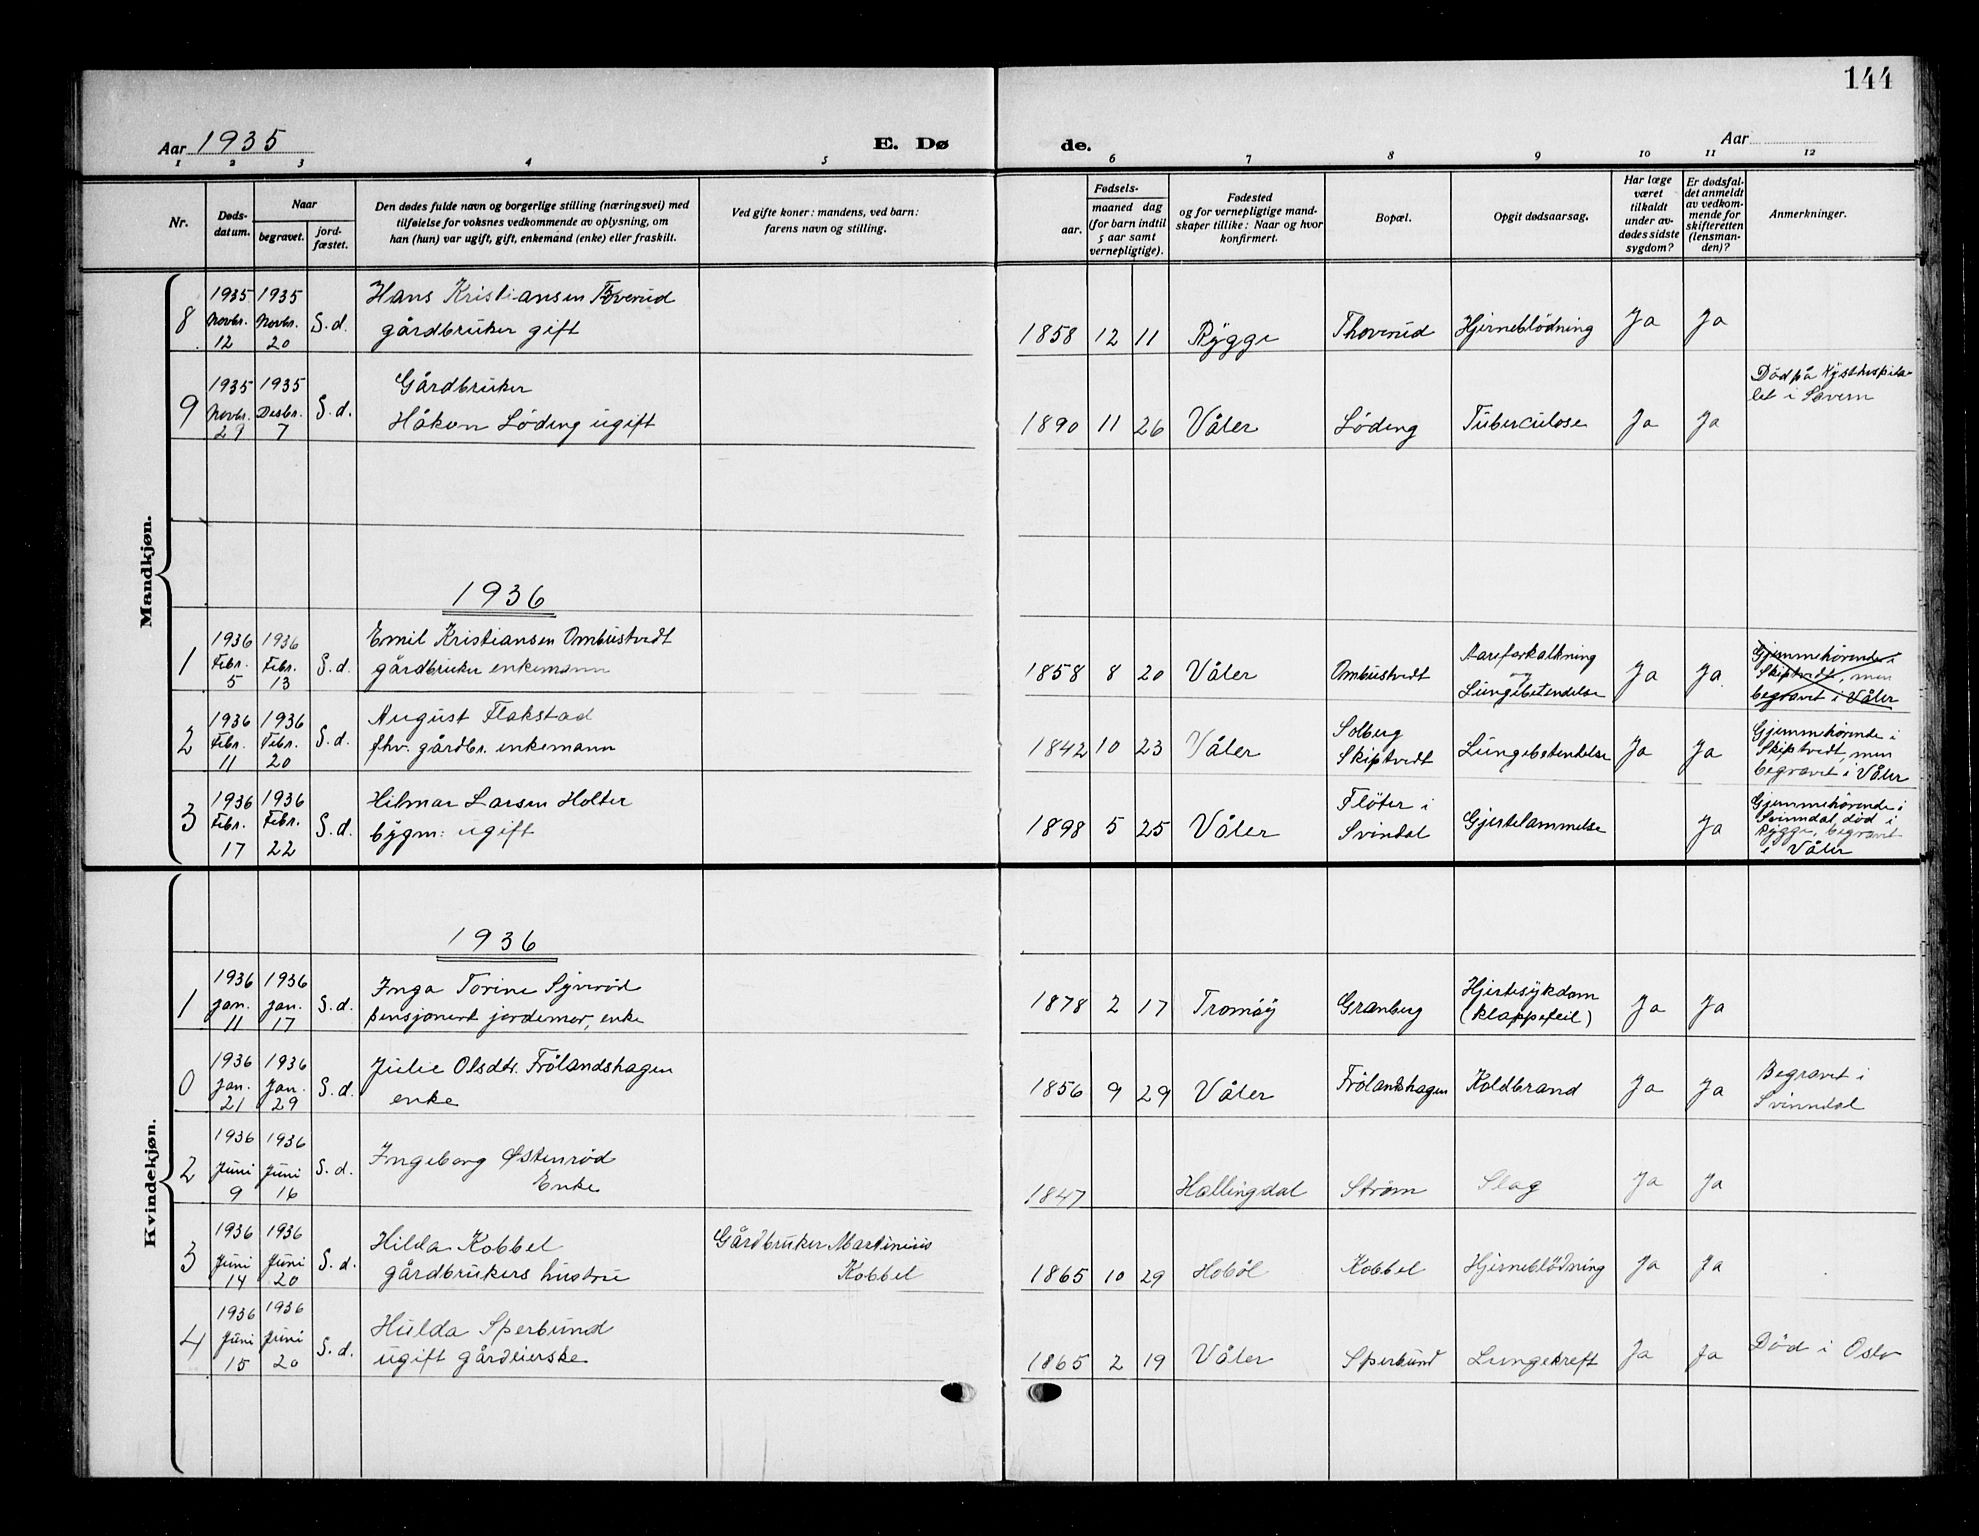 144
Aar 1935
E. Dø
de.
Aar
1 2 3 4 5 6 7 8 9 10 11 12
Nr.
Døds-
datum.
Naar
begravet.
jord-
fæstet.
Den dødes fulde navn og borgerlige stilling (næringsvei) med
tilføielse for voksnes vedkommende av oplysning, om
han (hun) var ugift, gift, enkemand (enke) eller fraskilt.
Ved gifte koner: mandens, ved barn:
farens navn og stilling.
Fødsels-
aar.
maaned dag
(for barn indtil
5 aar samt
vernepligtige).
Fødested
og for vernepligtige mand-
skaper tillike: Naar og hvor
konfirmert.
Bopæl.
Opgit dødsaarsag.
Har læge
været
tilkaldt
under av-
dødes sidste
sygdom?
Er dødsfal-
det anmeldt
av vedkom-
mende for
skifteretten
(lensman-
den)?
Anmerkninger.
Mandkjøn.
8
1935
Novbr.
12
1935
Novbr.
20
S. d.
Hans Kristiansen Toverud
gårdbruker gift
1858 12 11 Rygge Thoverud Hjerneblödning Ja Ja
9
1935
Novbr.
29
1935
Desbr.
7
S. d.
Gårdbruker
Håkon Löding ugift
1890 11 26 Våler Löding Tuberculose Ja Ja
Död på Kysthospita-
let i Stavern
1936
1
1936
Febr.
5
1936
Febr.
13
S. d.
Emil Kristiansen Ombustvedt
gårdbruker enkemann
1858 8 20 Våler Ombustvedt
Aareforkalkning
og
Lungebetendelse
Ja Ja
Gjemmehörende i
Skiptvedt, men
begravet i Våler
2
1936
Febr.
11
1936
Febr.
20
S. d.
August Flakstad
fhv. gårdbr. enkemann
1842 10 23 Våler
Solberg
Skiptvedt
Lungebetendelse Ja Ja
Gjemmehörende i
Skiptvedt, men
begravet i Våler
3
1936
Febr.
17
1936
Febr.
22
S. d.
Hilmar Larsen Holter
bygm: ugift
1898 5 25 Våler
Flöter i
Svindal
Gjertelammelse Ja
Gjemmehörende i
Svinndal, död i
Rygge, begravet
i Våler
Kvindekjøn.
1936
1
1936
Jan.
11
1936
Jan.
17
S. d.
Inga Torine Syveröd
pensjonert jordemor, enke
1878 2 17 Tromöy Granberg
Hjertesykdom
(klappefeil)
Ja Ja
0
1936
Jan.
21
1936
Jan.
29
S. d.
Julie Olsdtr. Frölandshagen
enke
1856 9 29 Våler Frölandshagen Koldbrand Ja Ja
Begravet i
Svinndal
2
1936
Juni
9
1936
Juni
16
S. d.
Ingeborg Østenröd
Enke
1847 Hallingdal Ström Slag Ja Ja
3
1936
Juni
14
1936
Juni
20
S. d.
Hilda Kobbel
gårdbrukers hustru
Gårdbruker Martinius
Kobbel
1865 10 29 Hoböl Kobbel Hjerneblödning Ja Ja
4
1936
Juni
15
1936
Juni
20
S. d.
Hulda Sperbund
ugift gårdeierske
1865 2 19 Våler Sperbund Lungekreft Ja Ja Död i Oslo